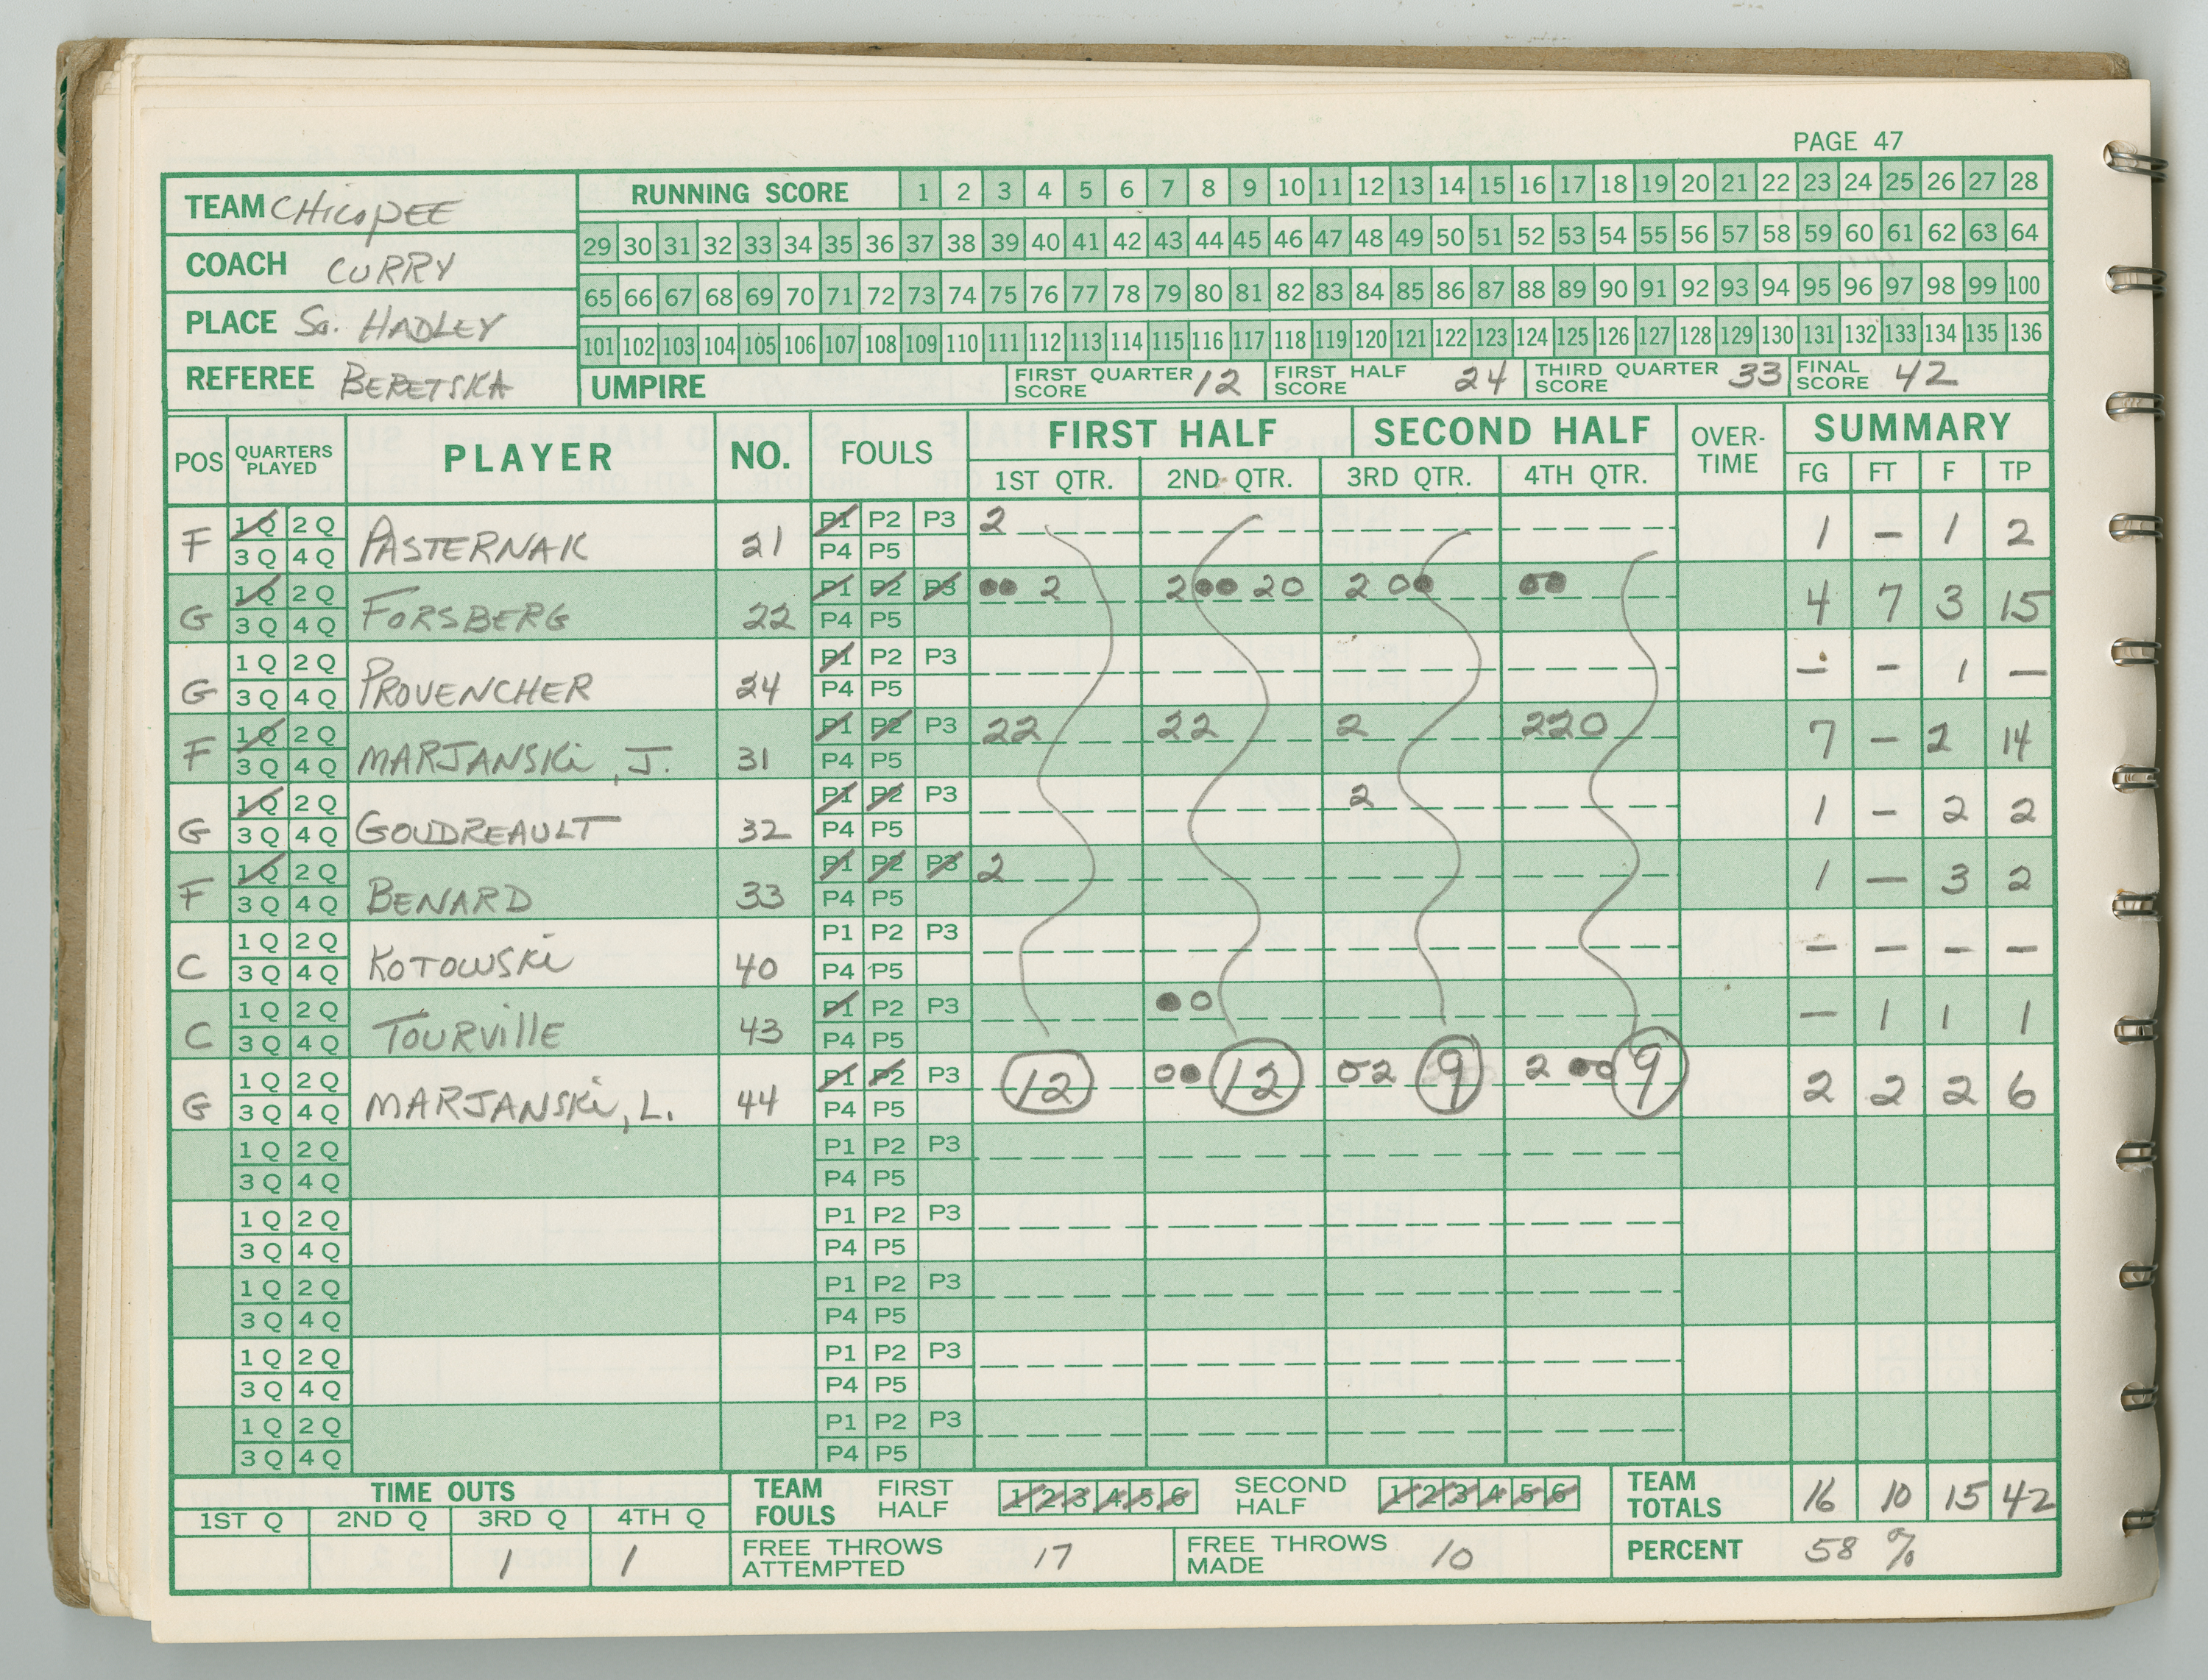 PAGE 47
TEAM CHICOPEE
RUNNING SCORE 1 2 3 4 5 6 7 8 9 10 11 12 13 14 15 16 17 18 19 20 21 22 23 24 25 26 27 28
29 30 31 32 33 34 35 36 37 38 39 40 41 42 43 44 45 46 47 48 49 50 51 52 53 54 55 56 57 58 59 60 61 62 63 64
COACH CURRY
65 66 67 68 69 70 71 72 73 74 75 76 77 78 79 80 81 82 83 84 85 86 87 88 89 90 91 92 93 94 95 96 97 98 99 100
PLACE So. HADLEY
101 102 103 104 105 106 107 108 109 110 111 112 113 114 115 116 117 118 119 120 121 122 123 124 125 126 127 128 129 130 131 132 133 134 135 136
REFEREE BERETSKA
UMPIRE FIRST QUARTER SCORE 12 FIRST HALF SCORE 24 THIRD QUARTER SCORE 33 FINAL SCORE 42
POS QUARTERS PLAYED PLAYER NO. FOULS FIRST HALF SECOND HALF OVER-TIME SUMMARY
1ST QTR. 2ND QTR. 3RD QTR. 4TH QTR. FG FT F TP
1 Q 2 Q P1 P2 P3 2
F 3 Q 4 Q PASTERNAK 21 P4 P5 1 - 1 2
1 Q 2 Q P1 P2 P3 ●● 2 2●● 20 2 0● ●●
G 3 Q 4 Q FORSBERG 22 P4 P5 4 7 3 15
1 Q 2 Q P1 P2 P3
G 3 Q 4 Q PROVENCHER 24 P4 P5 - - 1 -
1 Q 2 Q P1 P2 P3 22 22 2 220
F 3 Q 4 Q MARJANSKi, J. 31 P4 P5 7 - 2 14
1 Q 2 Q P1 P2 P3 2
G 3 Q 4 Q GOUDREAULT 32 P4 P5 1 - 2 2
1 Q 2 Q P1 P2 P3 2
F 3 Q 4 Q BENARD 33 P4 P5 1 - 3 2
1 Q 2 Q P1 P2 P3
C 3 Q 4 Q KOTOWSKi 40 P4 P5 - - - -
1 Q 2 Q P1 P2 P3 ●0
C 3 Q 4 Q TOURVillE 43 P4 P5 - 1 1 1
1 Q 2 Q P1 P2 P3 12 0● 12 02 9 2 ●●0 9
G 3 Q 4 Q MARJANSKi, L. 44 P4 P5 2 2 2 6
1 Q 2 Q P1 P2 P3
3 Q 4 Q P4 P5
1 Q 2 Q P1 P2 P3
3 Q 4 Q P4 P5
1 Q 2 Q P1 P2 P3
3 Q 4 Q P4 P5
1 Q 2 Q P1 P2 P3
3 Q 4 Q P4 P5
1 Q 2 Q P1 P2 P3
3 Q 4 Q P4 P5
TIME OUTS TEAM FOULS FIRST HALF 1 2 3 4 5 6 SECOND HALF 1 2 3 4 5 6 TEAM TOTALS 16 10 15 42
1ST Q 2ND Q 3RD Q 4TH Q
1 1 FREE THROWS ATTEMPTED 17 FREE THROWS MADE 10 PERCENT 58 %